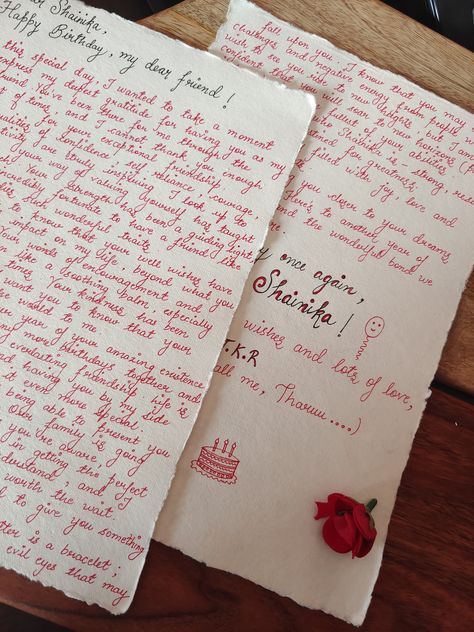 Dear Shainika,
Happy Birthday, my dear friend!
this special day, I wanted to take a moment
express my deepest gratitude for having you as my
friend. You've been there for me through the
of times, and I cannot thank you enough
for your exceptional friendship.
qualities of confidence, self reliance, courage,
are truly inspiring. I look up to
your way of valuing yourself has taught
Your strength has been a guiding light
incredibly fortunate to have a friend like
wonderful traits.
to know that your well wishes have
impact on my life, beyond what you
Your words of encouragement and
like a soothing balm, specially
times. Your kindness has been
want you to know that your
the world to me.
year of your amazing existence
many more birthdays together and
everlasting friendship. Life is
having you by my side
it even more special.
being able to present you
Our family is going
you're aware,
in getting the perfect
understand, and I
worth the wait.
to give you something
is a bracelet;
evil eyes that may
fall upon you. I know that you may
challenges and negative energy from people
wish to see you rise to new heights, but I
confident that you will soar to new horizons
fullest of your abilities.
Shainika is strong, res
for greatness.
filled with joy, love and
you closer to your dreams
Here's to another year of
and the wonderful bond we
once again,
Shainika!
wishes and lots of love,
T.K.R
call me, Tharuu.....)